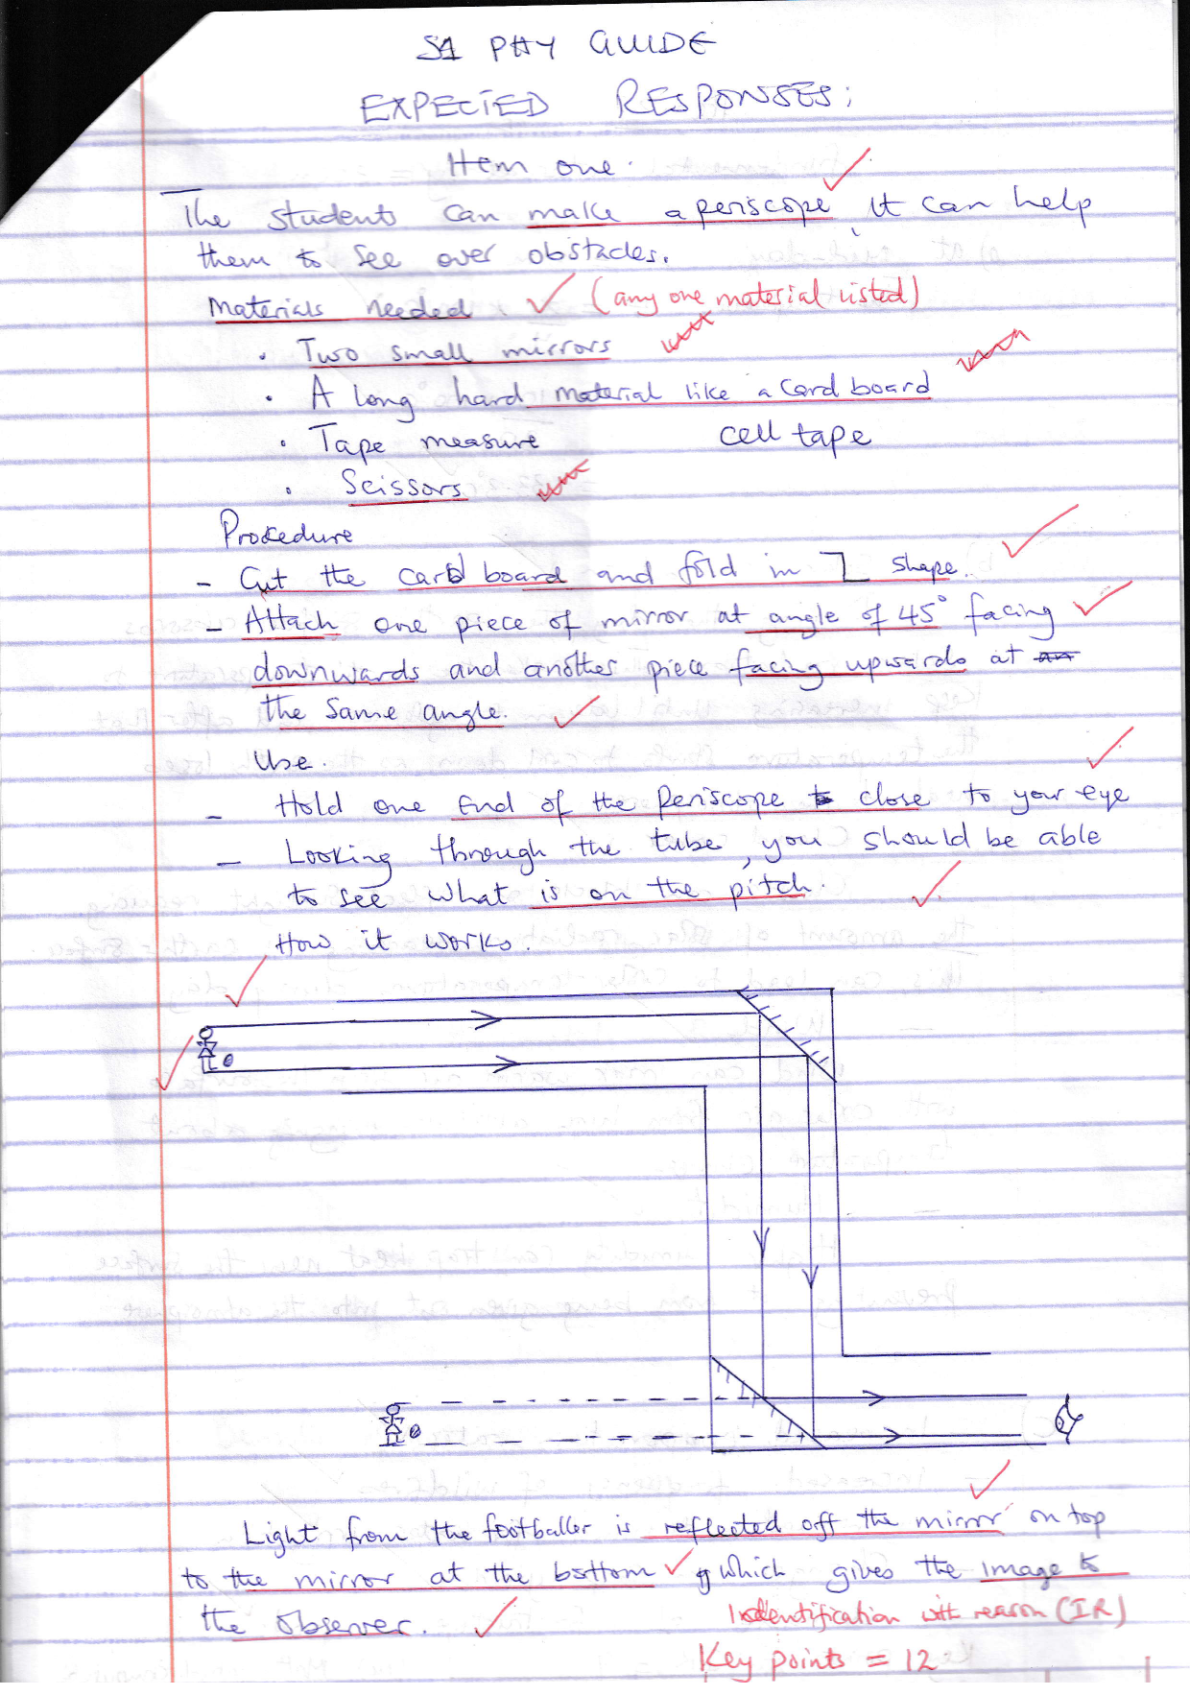 S1 PHY GUIDE
EXPECTED RESPONSES;
Item one.
The students can make a periscope, it can help
them to see over obstacles.
Materials needed (any one material listed)
• Two small mirrors
• A long hard material like a Card board
• Tape measure cell tape
• Scissors
Procedure
- Cut the card board and fold in shape.
- Attach one piece of mirror at angle of 45° facing
downwards and another piece facing upwards at
the same angle.
Use.
- Hold one end of the Periscope close to your eye
- Looking through the tube, you should be able
to see what is on the pitch.
How it works.
Light from the footballer is reflected off the mirror on top
to the mirror at the bottom which gives the image to
the observer.
Indentification with reason (IR)
Key points = 12